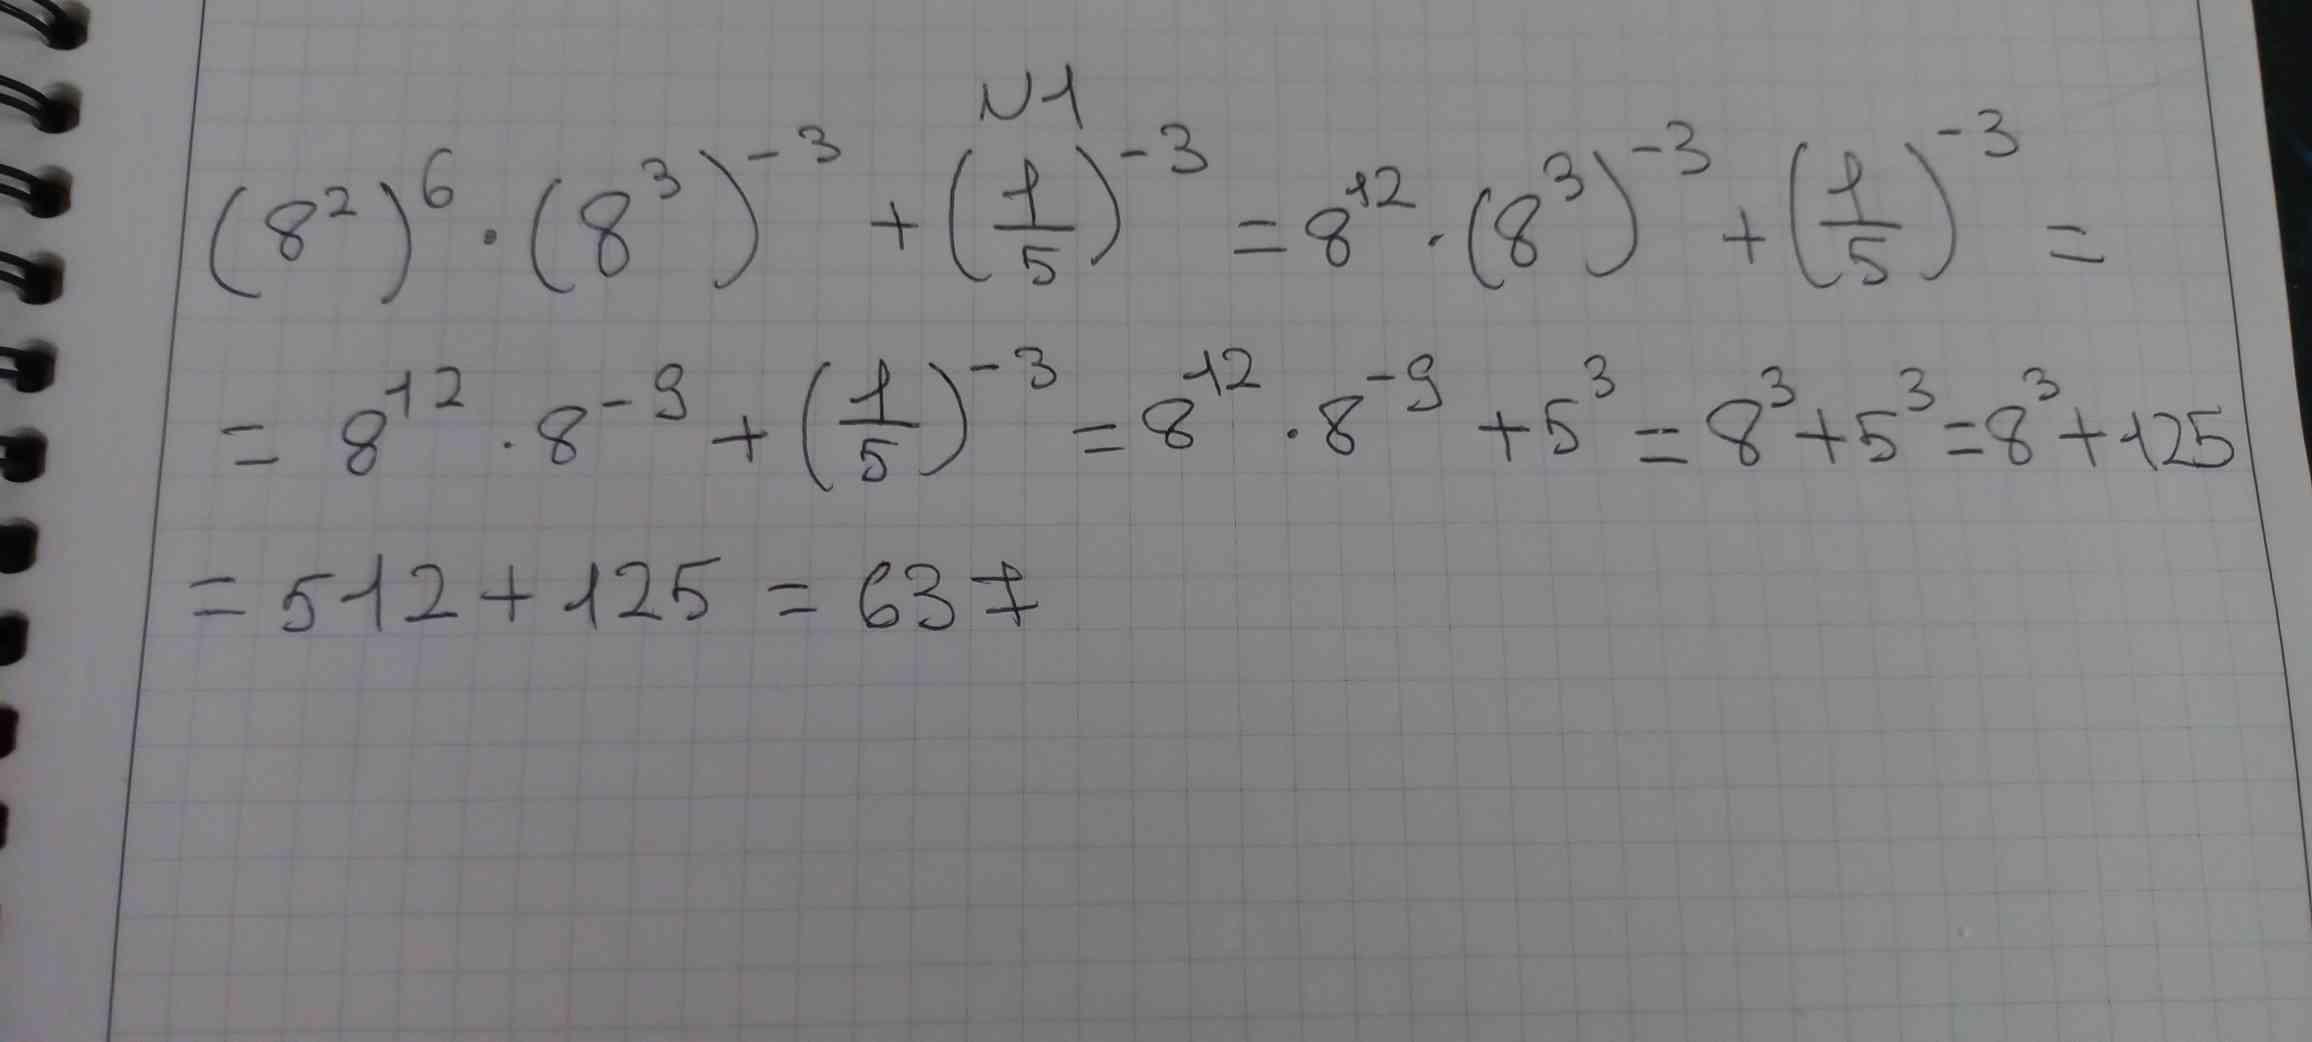 N1
(8²)⁶ · (8³)⁻³ + (1/5)⁻³ = 8¹² · (8³)⁻³ + (1/5)⁻³ =
= 8¹² · 8⁻⁹ + (1/5)⁻³ = 8¹² · 8⁻⁹ + 5³ = 8³ + 5³ = 8³ + 125
= 512 + 125 = 637